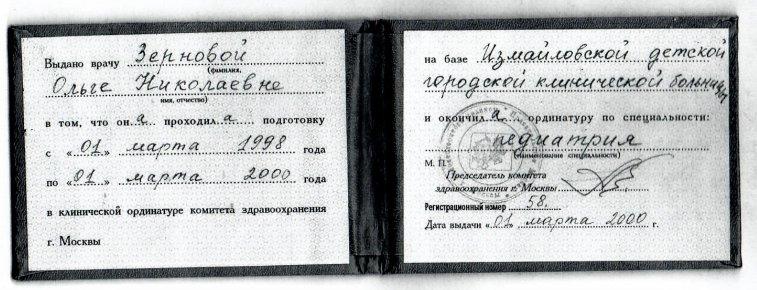 Выдано врачу Зерновой
(фамилия,
Ольге Николаевне
имя, отчество)
в том, что он а проходил а подготовку
с «01» марта 1998 года
по «01» марта 2000 года
в клинической ординатуре комитета здравоохранения
г. Москвы
на базе Измайловской детской
городской клинической больницы
и окончил а ординатуру по специальности:
педиатрия
(наименование специальности)
М. П.
Председатель комитета
здравоохранения г. Москвы
Регистрационный номер 58.
Дата выдачи «01» марта 2000 г.